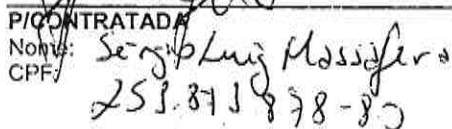 P/CONTRATADA
Nome: Sergio Luiz Massafera
CPF:
253.873.878-80